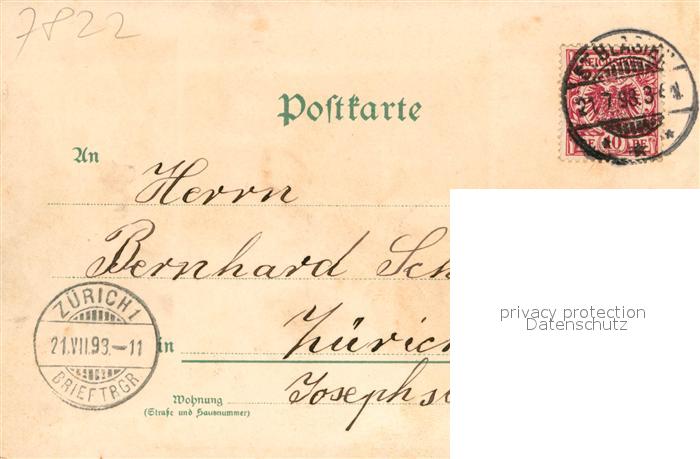 7822
ST. BLASIEN
REICHSPOST
21.7.93. 3-6N.
10 PF
Postkarte
An
Herrn
Bernhard Sch
ZÜRICH 1
21.VII.93.-11
BRIEFTRGR
in Zürich
Wohnung
(Straße und Hausnummer)
Josephs
privacy protection
Datenschutz